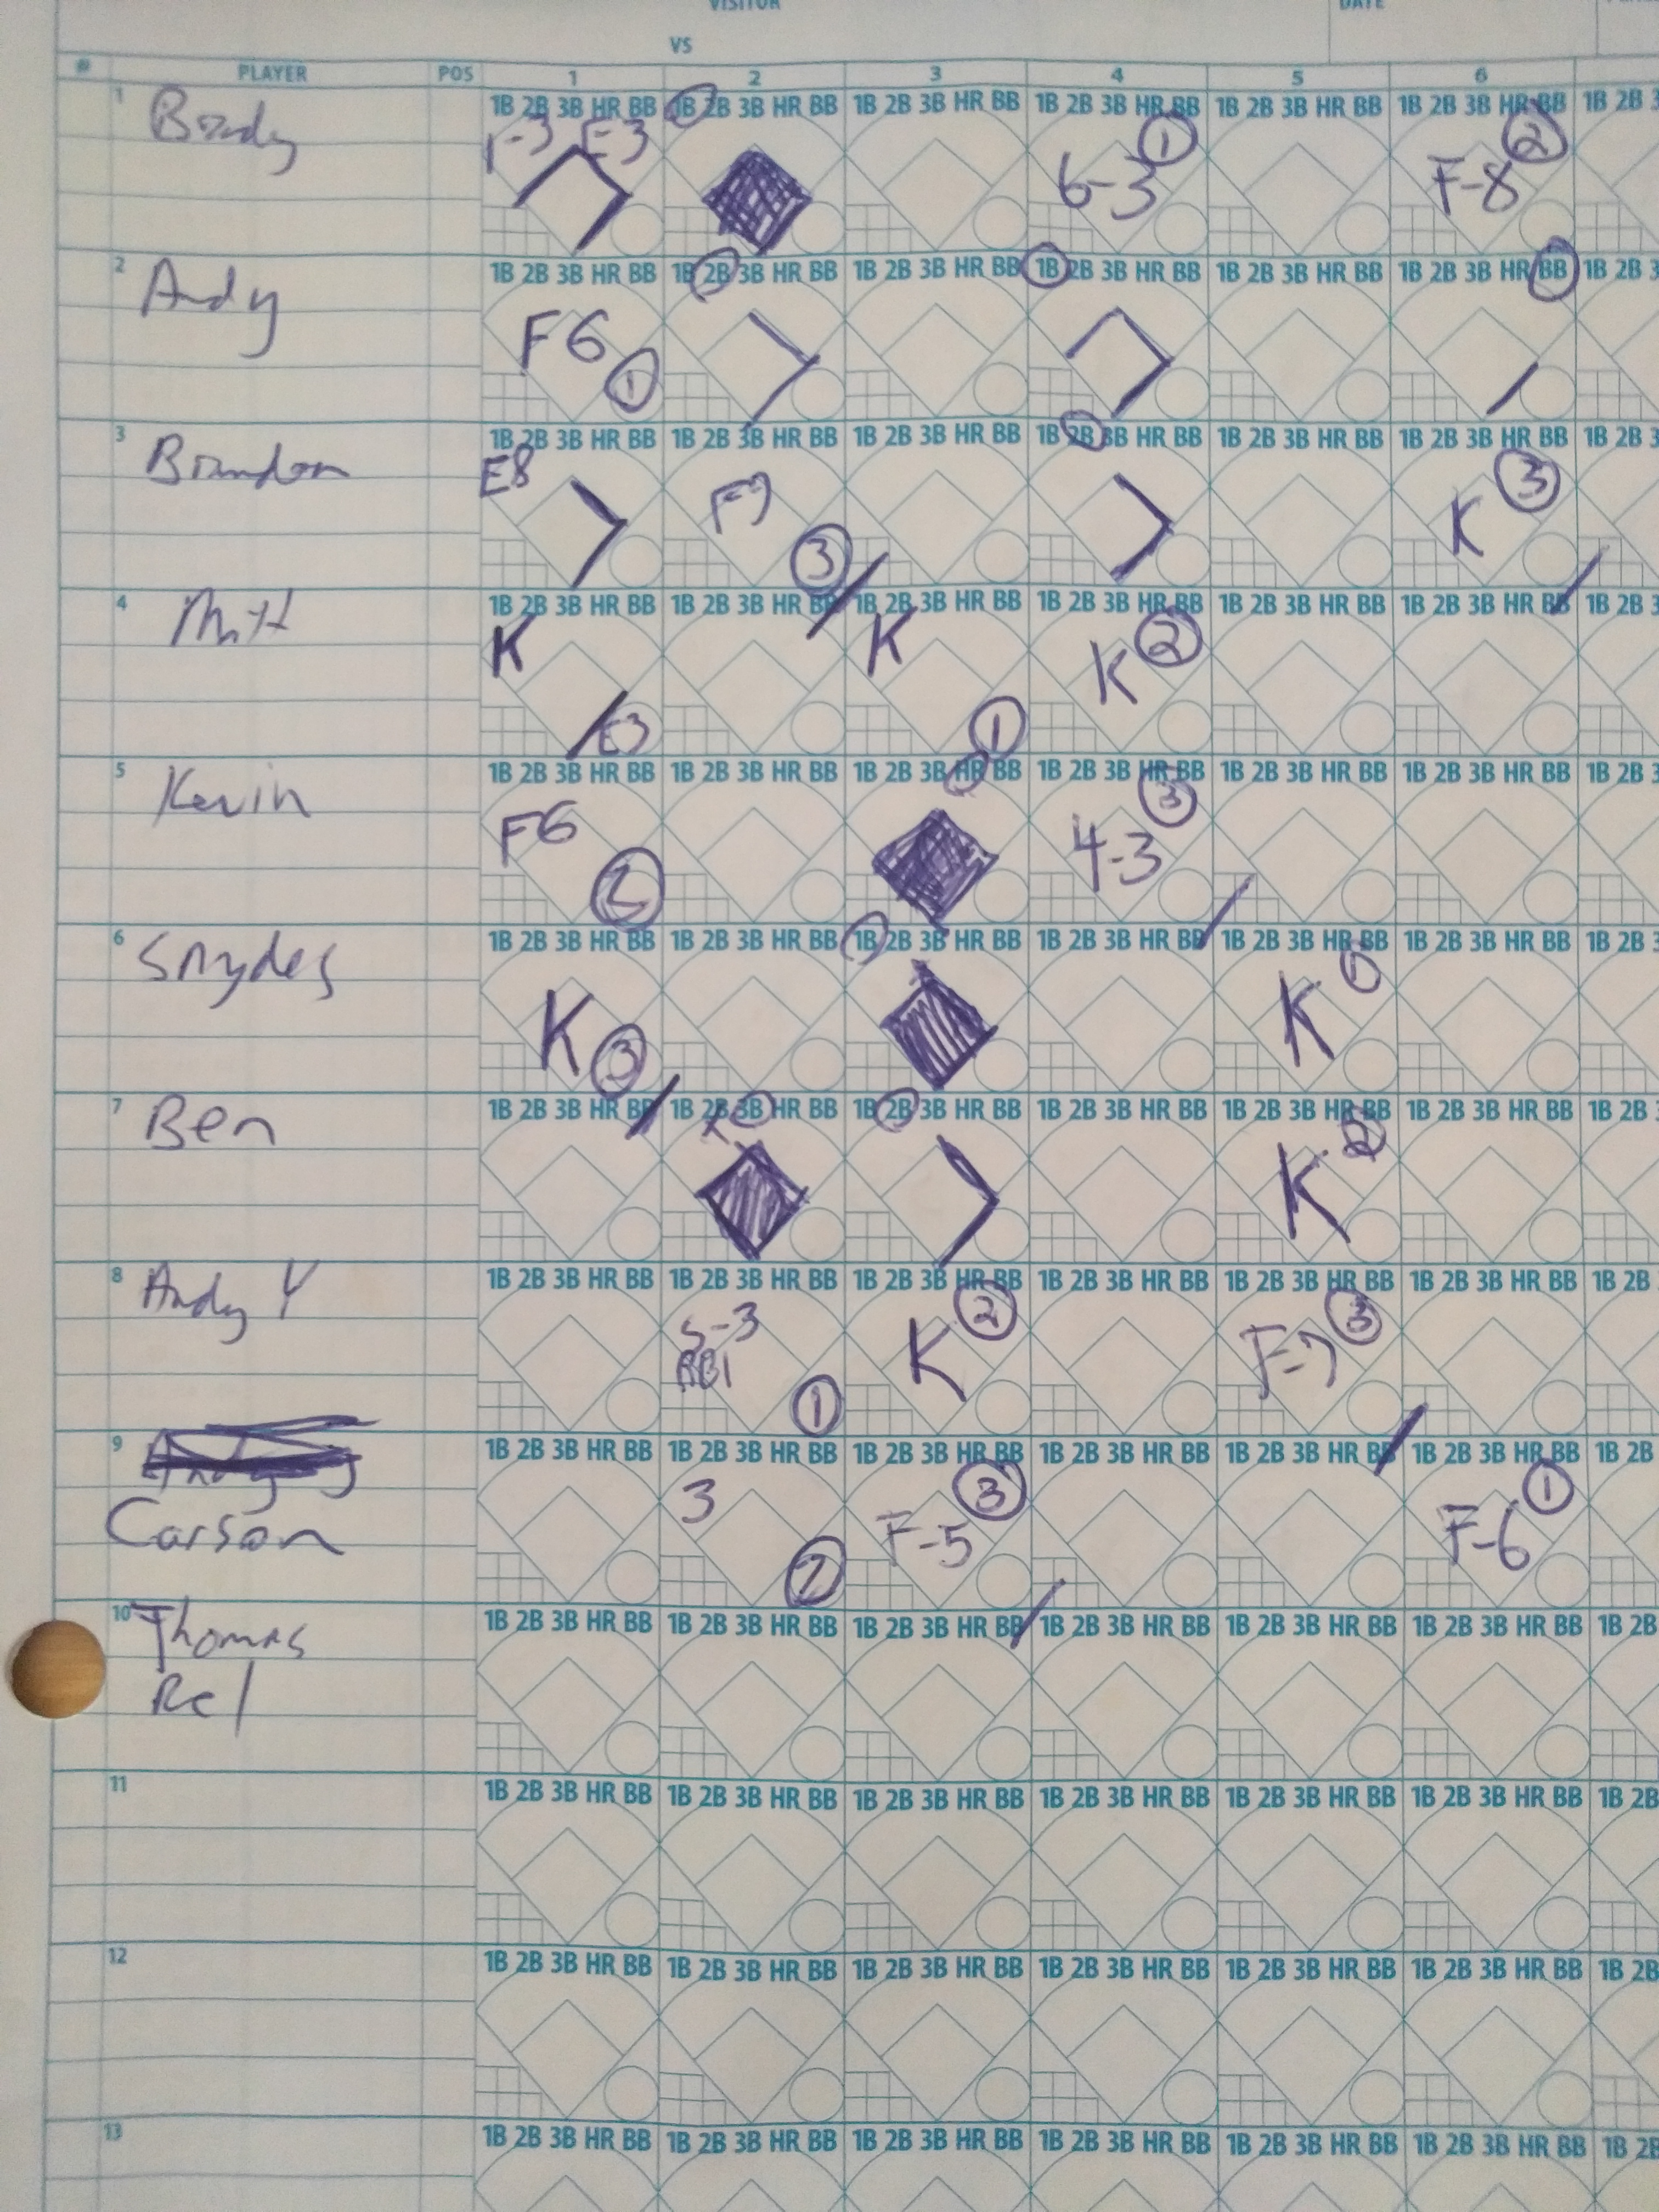 VISITOR
DATE
VS
# PLAYER POS 1 2 3 4 5 6
1 Brady 1B 2B 3B HR BB 1B 2B 3B HR BB 1B 2B 3B HR BB 1B 2B 3B HR BB 1B 2B 3B HR BB 1B 2B 3B HR BB 1B 2B 3
1-3 E3 6-3 1 F-8 2
2 Andy 1B 2B 3B HR BB 1B 2B 3B HR BB 1B 2B 3B HR BB 1B 2B 3B HR BB 1B 2B 3B HR BB 1B 2B 3B HR BB 1B 2B 3
F6 1
3 Brandon 1B 2B 3B HR BB 1B 2B 3B HR BB 1B 2B 3B HR BB 1B 2B 3B HR BB 1B 2B 3B HR BB 1B 2B 3B HR BB 1B 2B 3
E8 F9 3 K 3
4 1B 2B 3B HR BB 1B 2B 3B HR BB 1B 2B 3B HR BB 1B 2B 3B HR BB 1B 2B 3B HR BB 1B 2B 3B HR BB 1B 2B 3
K E3 K 1 K 2
5 Kevin 1B 2B 3B HR BB 1B 2B 3B HR BB 1B 2B 3B HR BB 1B 2B 3B HR BB 1B 2B 3B HR BB 1B 2B 3B HR BB 1B 2B 3
F6 2 4-3 3
6 Snyder 1B 2B 3B HR BB 1B 2B 3B HR BB 1B 2B 3B HR BB 1B 2B 3B HR BB 1B 2B 3B HR BB 1B 2B 3B HR BB 1B 2B 3
K 3 K
7 Ben 1B 2B 3B HR BB 1B 2B 3B HR BB 1B 2B 3B HR BB 1B 2B 3B HR BB 1B 2B 3B HR BB 1B 2B 3B HR BB 1B 2B 3
K 2
8 Andy Y 1B 2B 3B HR BB 1B 2B 3B HR BB 1B 2B 3B HR BB 1B 2B 3B HR BB 1B 2B 3B HR BB 1B 2B 3B HR BB 1B 2B
5-3 RBI 1 K 2 F-7 3
9 1B 2B 3B HR BB 1B 2B 3B HR BB 1B 2B 3B HR BB 1B 2B 3B HR BB 1B 2B 3B HR BB 1B 2B 3B HR BB 1B 2B
Carson 3 2 F-5 3 F-6 1
10 Thomas 1B 2B 3B HR BB 1B 2B 3B HR BB 1B 2B 3B HR BB 1B 2B 3B HR BB 1B 2B 3B HR BB 1B 2B 3B HR BB 1B 2B
11 1B 2B 3B HR BB 1B 2B 3B HR BB 1B 2B 3B HR BB 1B 2B 3B HR BB 1B 2B 3B HR BB 1B 2B 3B HR BB 1B 2B
12 1B 2B 3B HR BB 1B 2B 3B HR BB 1B 2B 3B HR BB 1B 2B 3B HR BB 1B 2B 3B HR BB 1B 2B 3B HR BB 1B 2B
13 1B 2B 3B HR BB 1B 2B 3B HR BB 1B 2B 3B HR BB 1B 2B 3B HR BB 1B 2B 3B HR BB 1B 2B 3B HR BB 1B 2B